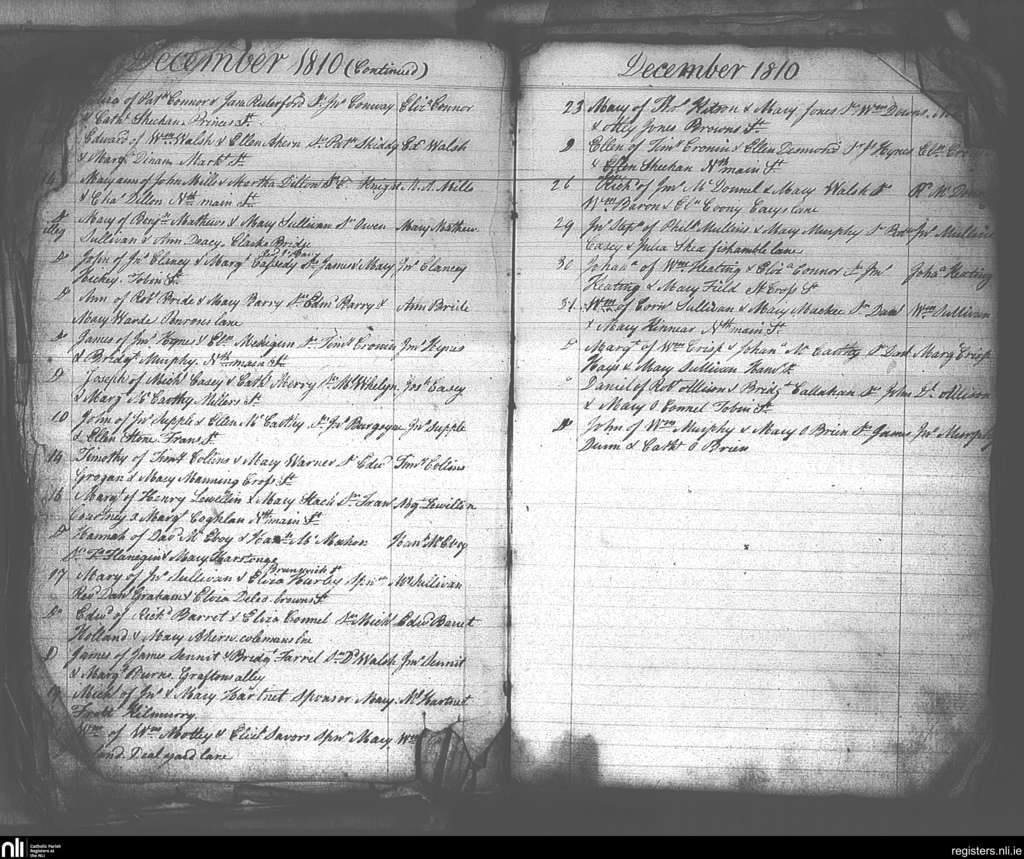 December 1810 (Continued)
of Patk Connor & Jane Ruterford Sr Jno Conway Eliza Connor
& Cathe Sheehan Princes St
Edward of Wm Walsh & Ellen Ahern Sr Patk Skiddy Ed Walsh
& Margt Dinan Markt St
Mary ann of John Mills & Martha Dillon Sr Knight M.A. Mills
& Chas Dillon Nth main St
Mary of Benjn Mathews & Mary Sullivan Sr Owen Mary Mathew
illeg
Sullivan & Ann Deacy. Clarks Bridg
John of Jno Clancy & Margt Cassidy Sr James Mary Jno Clancey
Hickey. Tobin St
Do Ann of Robt Bride & Mary Barry Sr Edmd Barry & Ann Bride
Mary Warde Penroses lane
Do James of Jas Hynes & Elln Menigin Sr Timy Cronin Jms Hynes
& Bridgt Murphy. Nth main St
Do Joseph of Michl Casey & Cath Merry Sr Whelyn Josh Casey
& Marg McCarthy Millers St
10 John of Jno Supple & Ellen McCarthy Sr Jno Burgoyne Jno Supple
& Ellen Stone Frans St
14 Timothy of Timy Collins & Mary Warner Sr Edwd Timy Collins
Grogan & Mary Manning Cross St
16 Margt of Henry Lewellin & Mary Hach Sr Frans Mgt Lewellin
Courtney & Margt Coghlan Nth main St
Do Hannah of David McEvoy & Hanh McMahon Hanh McEvoy
Flanegin & Mary Harstonge
Brunswick St
17 Mary of Jno Sullivan & Eliza Hurley Spnrs My Sullivan
Revd Danl Graham & Eliza Delea. browns St
Do Edwd of Richd Barrot & Eliza Connel Sr Michl Edwd Barret
Holland & Mary Ahern. colemans lne
Do James of James Sennit & Bridgt Farrel Sr Dd Walsh Jms Sennit
& Margt Burns. Graftons alley
19 Michl of Jno & Mary Hartnet Sponsor Mary Ml Hartnet
Froth Kilmurry
Wm of Wm Motley & Elizth Savors Spnr Mary Wm
and. Deal yard lane
December 1810
23 Mary of Thos Hitson & Mary Jones Sr Wm Downs.
& otley Jones Browns St
Do Ellen of Timy Cronin & Ellen Desmond Sr J Hynes Elln Cro
& Ellen Sheehan Nth main St
26 Richd of Jms McDonnel & Mary Walsh Sr Rd McDon
Wm Baron & Eln Coony Careys lane
29 Jno Stepn of Phill Mullins & Mary Murphy Sr Jno Mullins
Casey & Julia Shea fishamble lane
30 Johana of Wm Keating & Eliza Connor Sr Jno Joha Keating
Keating & Mary Field N Cross St
31 Wm of Corns Sullivan & Mary Mackee Sr Danl Wm Sullivan
& Mary Kinnear Nth main St
Do Margt of Wm Crisp & Johana McCarthy Sr Dand Marg Crisp
Hays & Mary Sullivan Hans St
Daniel of Robt Allison & Bridgt Callahan Sr John Dl Allison
& Mary O Connel Tobin St
Do John of Wm Murphy & Mary O Brien Sr James Jno Murphy
Dunn & Cathe O Brien
nli
Catholic Parish
Registers at
the NLI
registers.nli.ie